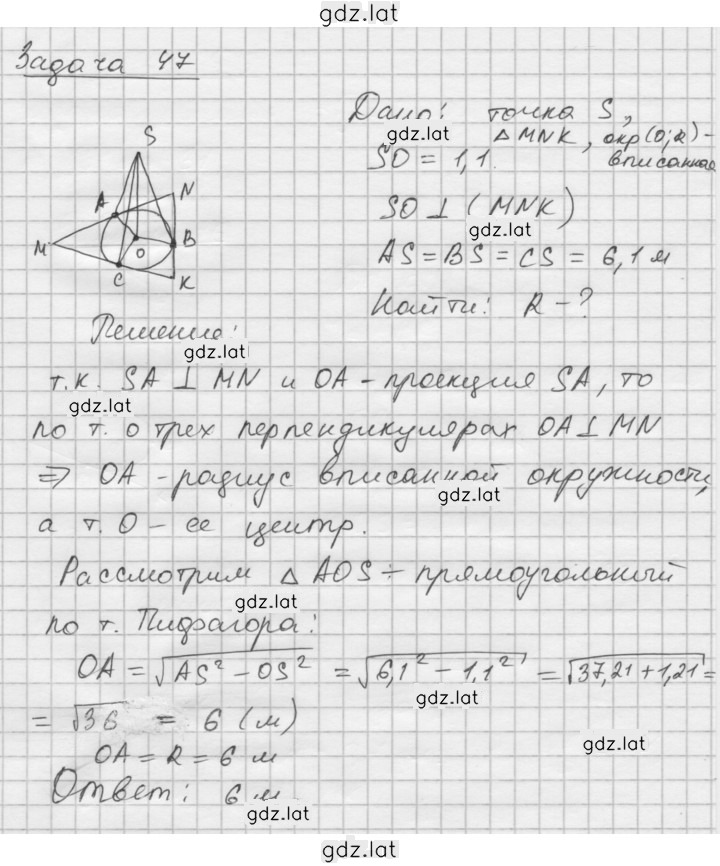 gdz.lat
Задача 47
Дано: точка S,
gdz.lat
△ MNK, окр(O;R)-
вписанная
SO = 1,1
SO ⊥ (MNK)
gdz.lat
AS = BS = CS = 6,1 м
Найти: R - ?
S
A
N
M
B
O
C
K
Решение:
gdz.lat
т.к. SA ⊥ MN и OA - проекция SA, то
gdz.lat
по т. о трех перпендикулярах OA ⊥ MN
⇒ OA - радиус вписанной окружности,
gdz.lat
а т. O - ее центр.
Рассмотрим △ AOS - прямоугольный
gdz.lat
по т. Пифагора:
OA = √AS² - OS² = √6,1² - 1,1² = √37,21 + 1,21 =
gdz.lat
= √36 = 6 (м)
gdz.lat
OA = R = 6 м
Ответ: 6 м
gdz.lat
gdz.lat